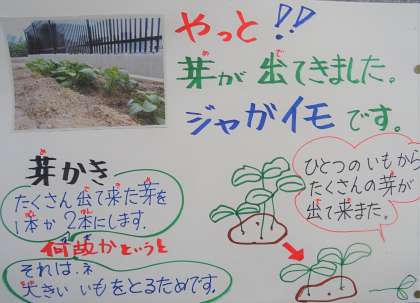 やっと!!
芽が出てきました。
ジャガイモです。
芽かき
たくさん出て来た芽を
1本か2本にします。
何故かというと
それは、ネ
大きいいもをとるためです。
ひとつのいもから
たくさんの芽が
出て来また。